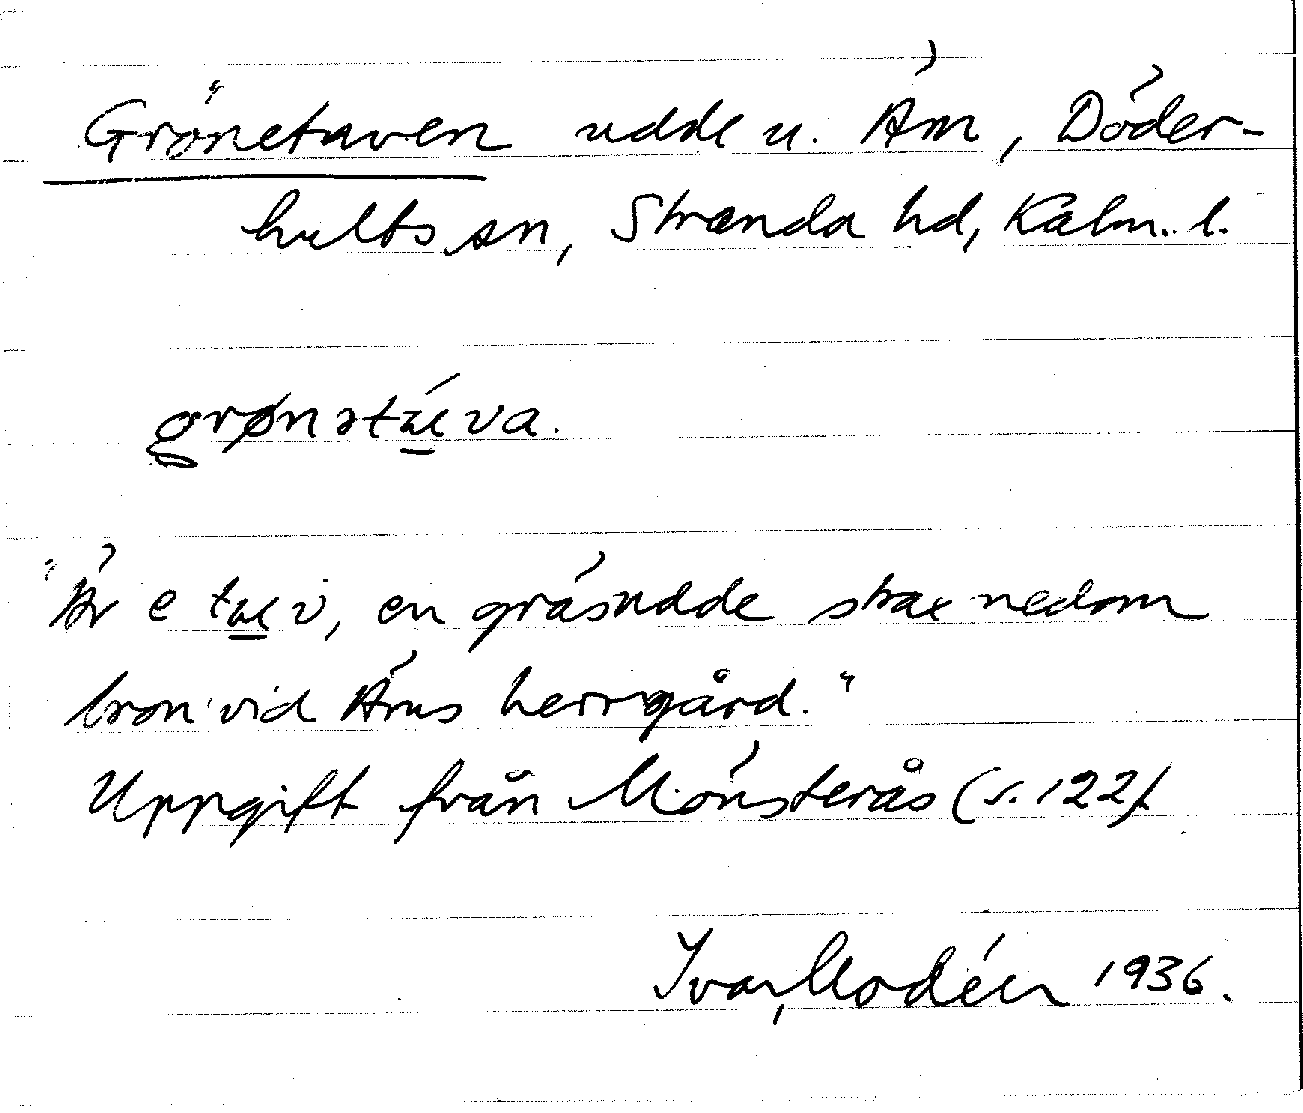 Grönetuven udde u. Em, Döder-
hults sn, Stranda hd, Kalm. l.
grønətʉ́va.
"Är e tʉv, en gräsudde strax nedom
bron vid Ems herrgård."
Uppgift från Mönsterås (s. 122).
Ivar Modéer 1936.